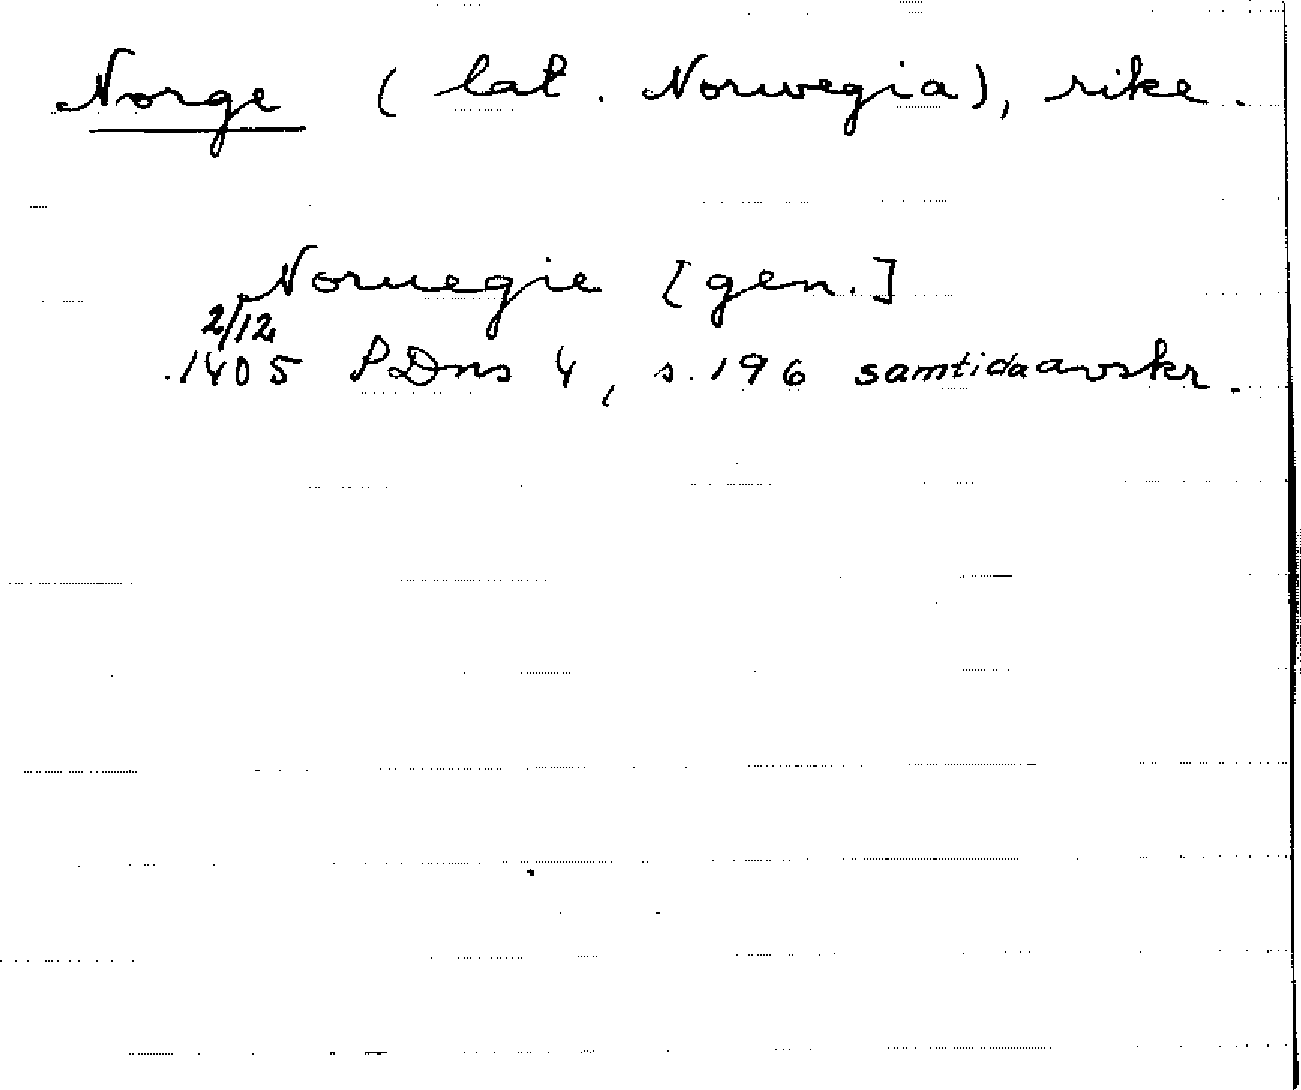 Norge (lat. Norwegia), rike.
Noruegie [gen.]
2/12
1405 PDns 4, s. 196 samtida avskr.